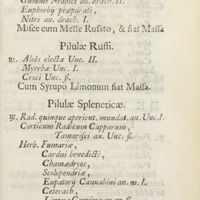 Gummi Arabici an. drach. II.
Euphorbij præparati,
Nitri an. drach. I.
Misce cum Melle Rosato, & fiat Massa
Pilulæ Ruffi.
℞. Aloës electæ Unc. II.
Myrrhæ Unc. I.
Croci Unc. ß.
Cum Syrupo Limonum fiat Massa.
Pilulæ Spleneticæ.
℞. Rad. quinque aperient. mundat. an. Unc. I.
Corticum Radicum Capparum,
Tamarisci an. Unc. ß.
Herb. Fumariæ,
Cardui benedicti,
Chamædryos,
Scolopendriæ,
Eupatorij Cannabini an. m. I.
Ceterach,